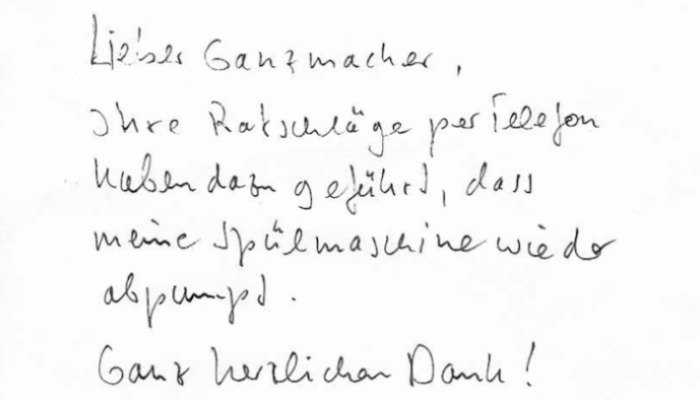 Lieber Ganzmacher,
Ihre Ratschläge per Telefon
haben dazu geführt, dass
meine Spülmaschine wieder
abpumpt.
Ganz herzlichen Dank!